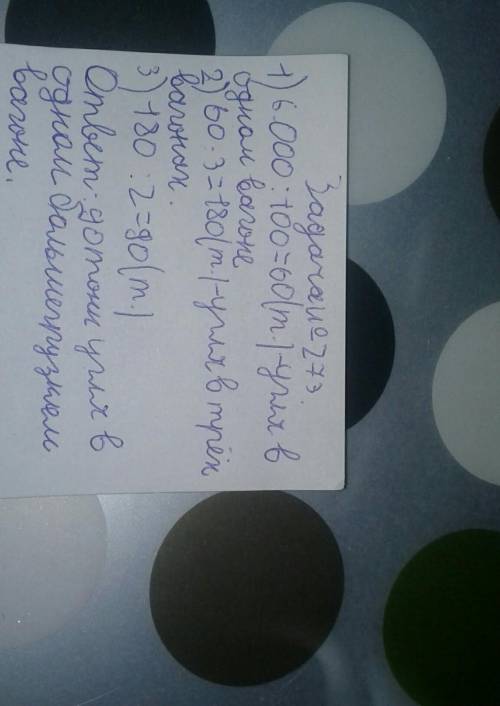 Задача № 273.
1) 6.000 : 100 = 60 (т.) - угля в
одном вагоне
2) 60 · 3 = 180 (т.) - угля в трёх
вагонах.
3) 180 : 2 = 90 (т.)
Ответ: 90 тонн угля в
одном большегрузном
вагоне.